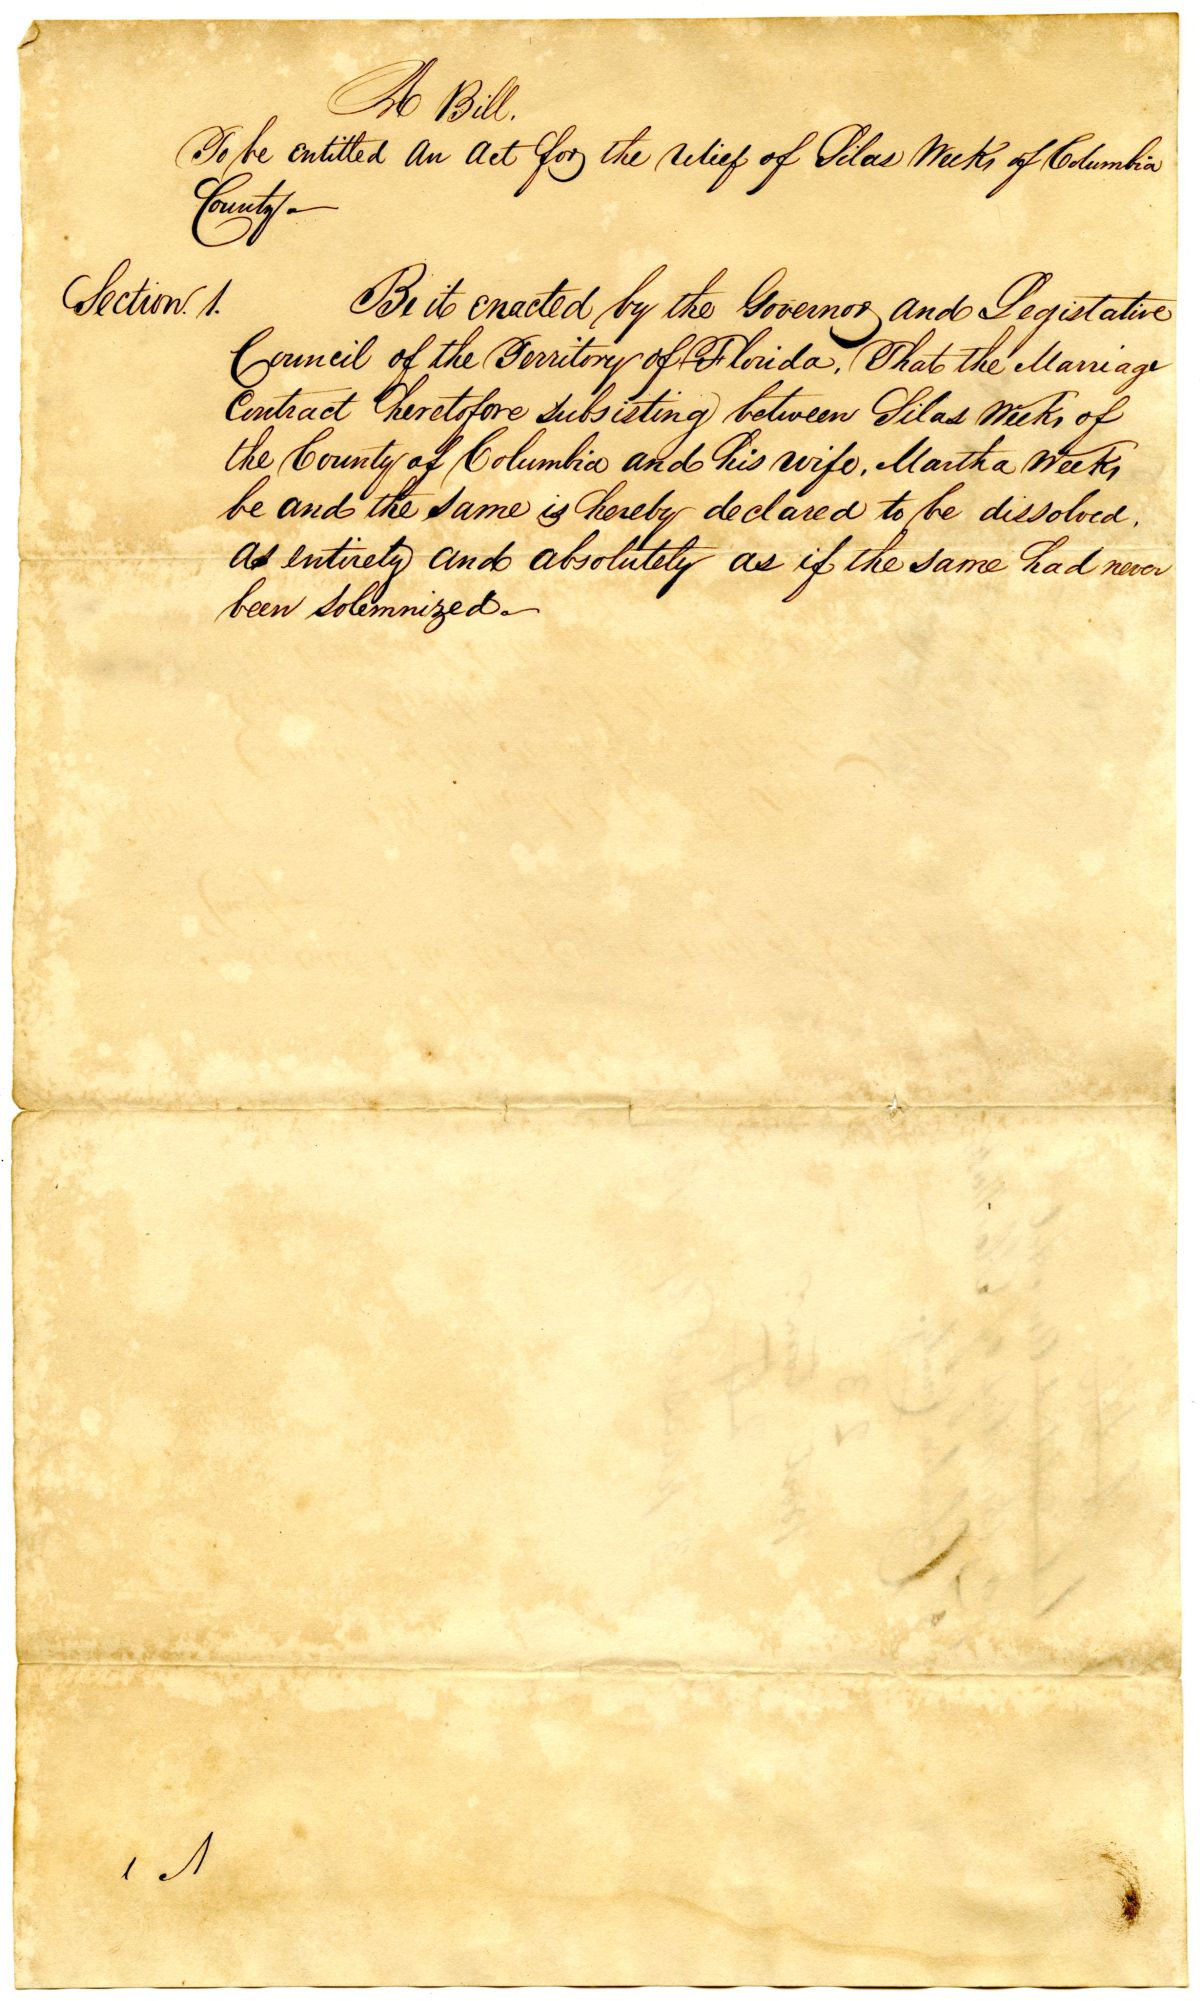 A Bill.
To be entitled an act for the relief of Silas Weeks of Columbia
County.—
Section. 1. Be it enacted by the Governor and Legislative
Council of the Territory of Florida, That the Marriage
Contract heretofore subsisting between Silas Weeks of
the County of Columbia and his wife, Martha Weeks
be and the same is hereby declared to be dissolved,
as entirely and absolutely as if the same had never
been solemnized.—